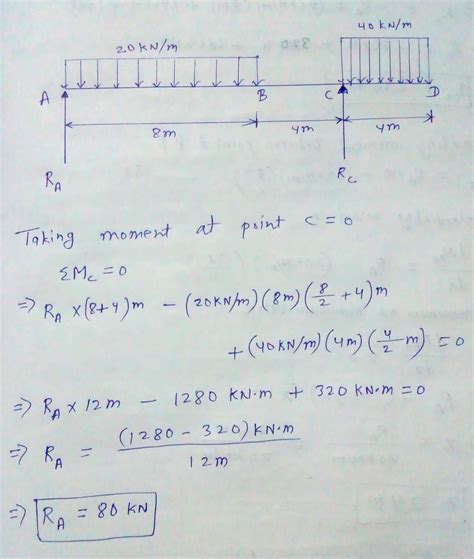 40 KN/m
20 KN/m
A B C D
8m 4m 4m
R_A R_C
Taking moment at point C = 0
ΣM_C = 0
⇒ R_A × (8+4) m − (20KN/m) (8m) (8/2 + 4) m
+ (40 KN/m) (4m) (4/2 m) = 0
⇒ R_A × 12m − 1280 KN·m + 320 KN·m = 0
⇒ R_A = (1280 − 320) KN·m / 12m
⇒ R_A = 80 KN